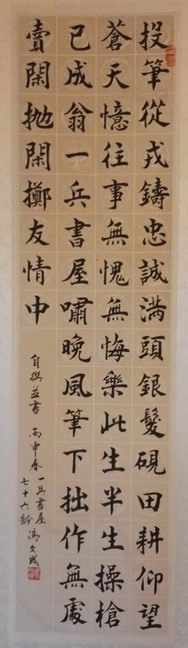 投筆從戎鑄忠誠滿頭銀髮硯田耕仰望
蒼天憶往事無愧無悔樂此生半生操槍
已成翁一兵書屋嘯晚風筆下拙作無處
賣閑拋閑擲友情中
自撰並書 丙申春 一兵書屋
七十六齡 馮文成